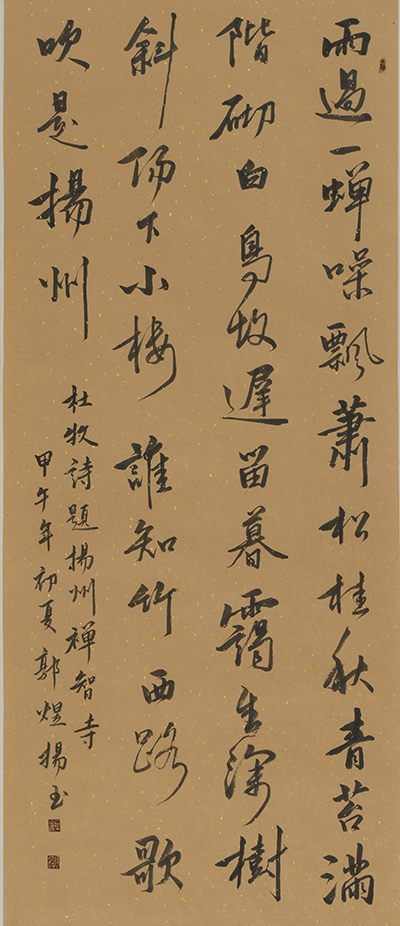 雨過一蟬噪飄蕭松桂秋青苔滿
階砌白鳥故遲留暮靄生深樹
斜陽下小樓誰知竹西路歌
吹是揚州
杜牧詩題揚州禪智寺
甲午年初夏郭煜揚書